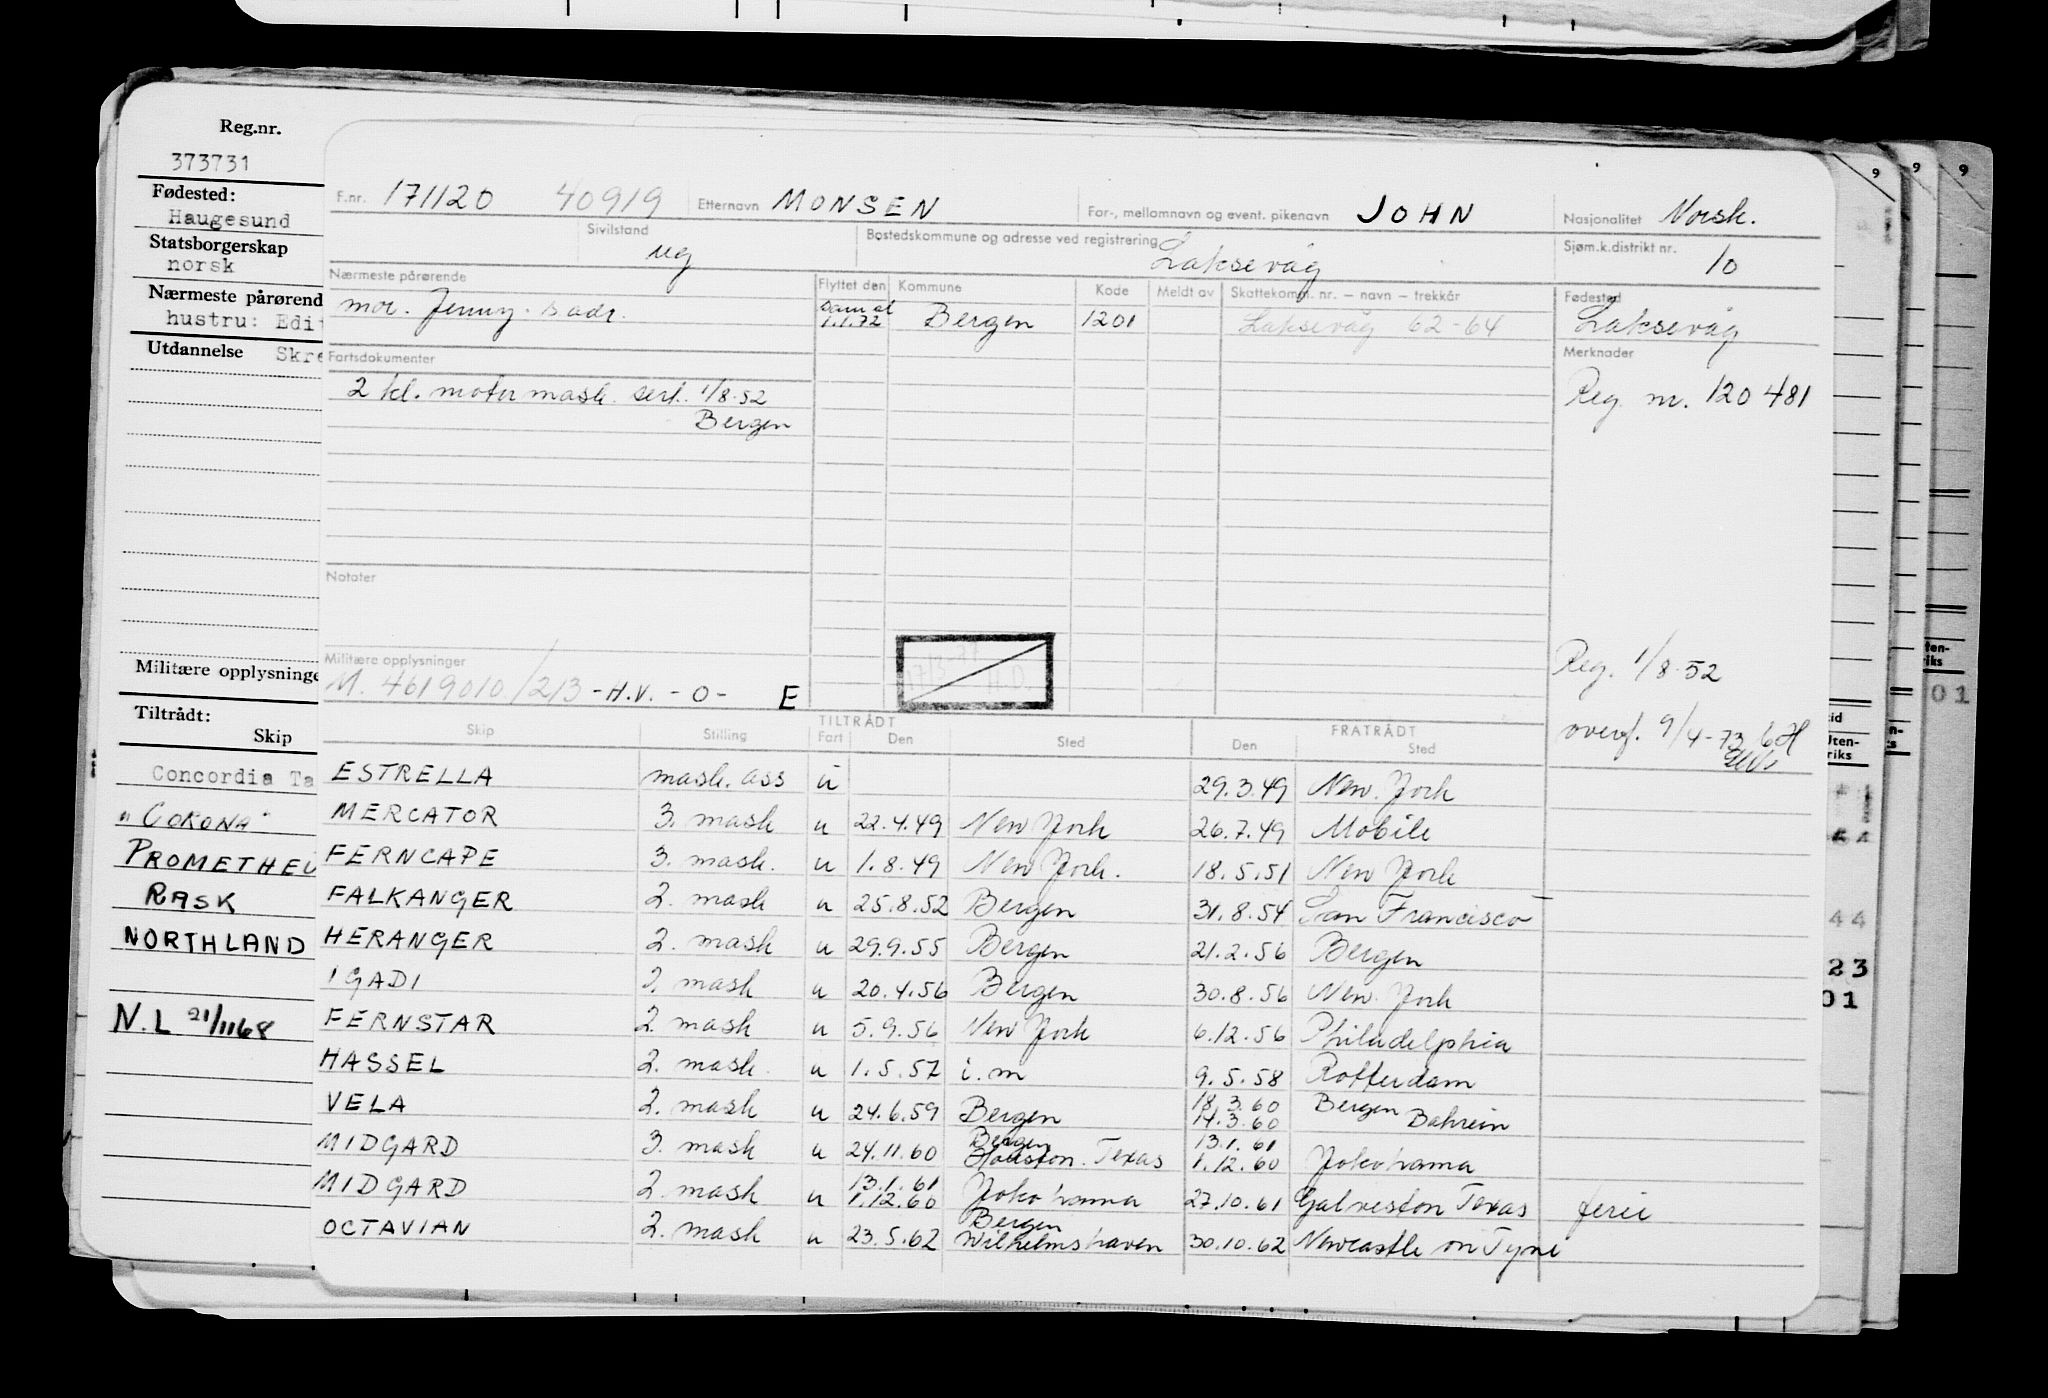 Reg.nr.
373731
Fødested:
Haugesund
Statsborgerskap
norsk
Nærmeste pårørend
hustru: Edi
Utdannelse Skre
Militære opplysninge
Tiltrådt:
Skip
Concordia Ta
"CORONA"
PROMETHEU
RASK
NORTHLAND
N.L 21/1168
F.nr. 171120 40919 Etternavn MONSEN For-, mellomnavn og event. pikenavn JOHN Nasjonalitet Norsk.
Sivilstand ug Bostedskommune og adresse ved registrering Laksevåg Sjøm.k.distrikt nr. 10
Nærmeste pårørende Flyttet den Kommune Kode Meldt av Skattekomm. nr. – navn – trekkår Fødested
mor. Jenny. s adr. 1.1.72 Bergen 1201 Laksevåg 62-64 Laksevåg
Fartsdokumenter Merknader
2 kl. motormask. sert. 1/8.52 Reg. nr. 120481
Bergen
Notater
Militære opplysninger Reg. 1/8.52
M. 4619010/213 - H.V. - O - E
overf. 9/4-73
Skip Stilling TILTRÅDT Fart Den Sted FRATRÅDT Den Sted
ESTRELLA mask. ass u 29.3.49 New. York
MERCATOR 3. mask u 22.4.49 New York 26.7.49 Mobile
FERNCAPE 3. mask. u 1.8.49 New York. 18.5.51 New York
FALKANGER 2. mask u 25.8.52 Bergen 31.8.54 San Francisco
HERANGER 2. mask u 29.9.55 Bergen 21.2.56 Bergen
IGADI 2. mask u 20.4.56 Bergen 30.8.56 New. York
FERNSTAR 2. mask u 5.9.56 New York 6.12.56 Philadelphia
HASSEL 2. mask. u 1.5.57 i.m 9.5.58 Rotterdam
VELA 2. mask u 24.6.59 Bergen 18.3.60 14.3.60 Bergen Bahrein
MIDGARD 3. mask u 24.11.60 Bergen Houston. Texas 13.1.61 1.12.60 Yokohama
MIDGARD 2. mask u 13.1.61 1.12.60 Yokohama 27.10.61 Galveston Texas ferie
OCTAVIAN 2. mask u 23.5.62 Bergen Wilhelmshaven 30.10.62 Newcastle on Tyne
9
9
9
01
44
23
01